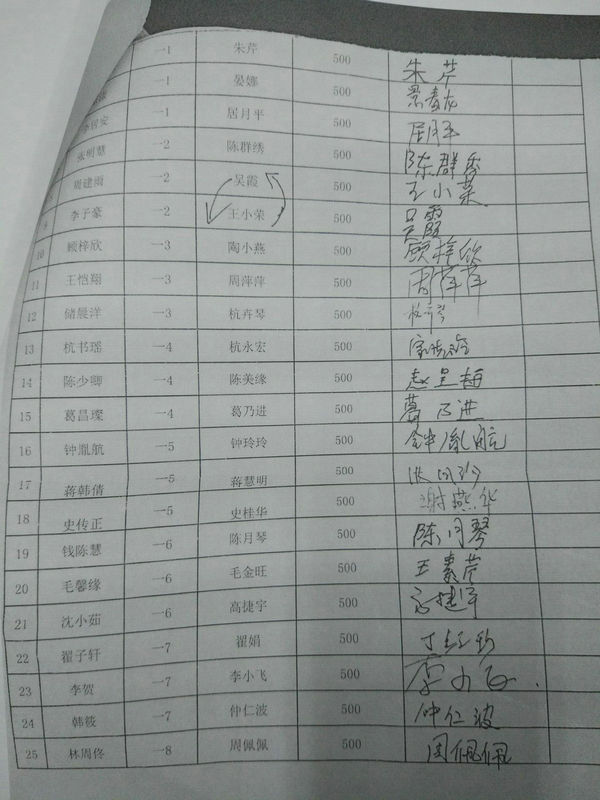 一1 朱芹 500 朱芹
一1 晏娜 500
一1 居月平 500 居月平
张明慧 一2 陈群绣 500 陈群秀
周建雨 一2 吴霞 500 王小荣
9 李子豪 一2 王小荣 500 吴霞
10 顾梓欣 一3 陶小燕 500 顾梓欣
11 王恺翔 一3 周萍萍 500 周萍萍
12 储晨洋 一3 杭卉琴 500
13 杭书瑶 一4 杭永宏 500
14 陈少卿 一4 陈美缘 500 赵呈梅
15 葛昌璨 一4 葛乃进 500 葛乃进
16 钟胤航 一5 钟玲玲 500 钟胤航
17 蒋韩倩 一5 蒋慧明 500
18 史传正 一5 史桂华 500 谢燕华
19 钱陈慧 一6 陈月琴 500 陈月琴
20 毛馨缘 一6 毛金旺 500 王素芹
21 沈小茹 一6 高捷宇 500 高捷宇
22 翟子轩 一7 翟娟 500
23 李贺 一7 李小飞 500 李小飞.
24 韩筱 一7 仲仁波 500 仲仁波
25 林周佟 一8 周佩佩 500 周佩佩